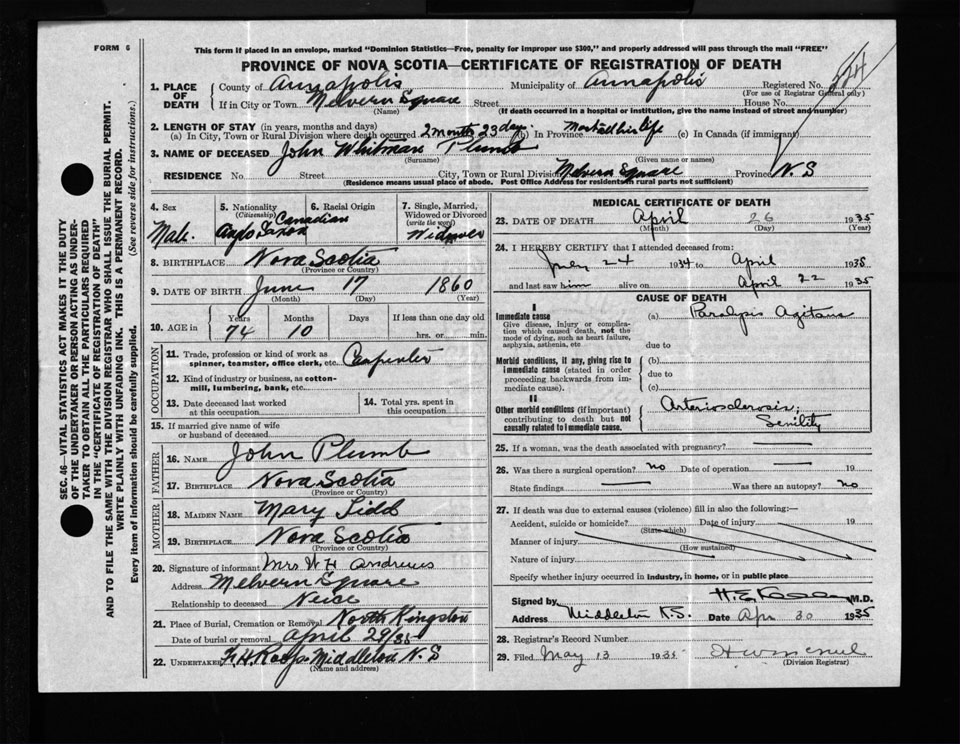 FORM 6
This form if placed in an envelope, marked "Dominion Statistics—Free, penalty for improper use $300," and properly addressed will pass through the mail "FREE"
PROVINCE OF NOVA SCOTIA—CERTIFICATE OF REGISTRATION OF DEATH
1. PLACE OF DEATH
County of Annapolis Municipality of Annapolis Registered No. 224
(For use of Registrar General only)
If in City or Town Melvern Square Street House No.
(Name) (If death occurred in a hospital or institution, give name instead of street and number)
2. LENGTH OF STAY (in years, months and days)
(a) In City, Town or Rural Division where death occurred 2 months 23 days (b) In Province Most all his life (c) In Canada (if immigrant)
3. NAME OF DECEASED John Whitman Plumb
(Surname) (Given name or names)
RESIDENCE No. Street City, Town or Rural Division Melvern Square Province N.S
(Residence means usual place of abode. Post Office Address for residents in rural parts not sufficient)
4. Sex Male
5. Nationality (Citizenship) Canadian
6. Racial Origin Anglo Saxon
7. Single, Married, Widowed or Divorced (write the word) Widower
8. BIRTHPLACE Nova Scotia
(Province or Country)
9. DATE OF BIRTH June 17 1860
(Month) (Day) (Year)
10. AGE in Years Months Days If less than one day old
74 10 hrs. or min.
OCCUPATION
11. Trade, profession or kind of work as spinner, teamster, office clerk, etc. Carpenter
12. Kind of industry or business, as cotton-mill, lumbering, bank, etc.
13. Date deceased last worked at this occupation
14. Total yrs. spent in this occupation
15. If married give name of wife or husband of deceased
FATHER
16. NAME John Plumb
17. BIRTHPLACE Nova Scotia
(Province or Country)
MOTHER
18. MAIDEN NAME Mary
19. BIRTHPLACE Nova Scotia
(Province or Country)
20. Signature of informant Mrs W H Andrews
Address Melvern Square
Relationship to deceased Neice
21. Place of Burial, Cremation or Removal North Kingston
Date of burial or removal April 29/35
22. UNDERTAKER Middleton N.S
(Name and address)
MEDICAL CERTIFICATE OF DEATH
23. DATE OF DEATH April 26 1935
(Month) (Day) (Year)
24. I HEREBY CERTIFY that I attended deceased from:
July 24 1934 to April 1935
and last saw him alive on April 22 1935
CAUSE OF DEATH
I
Immediate cause
Give disease, injury or complication which caused death, not the mode of dying, such as heart failure, asphyxia, asthenia, etc
(a) Paralysis Agitans
due to
Morbid conditions, if any, giving rise to immediate cause (stated in order proceeding backwards from immediate cause).
(b)
due to
(c)
II
Other morbid conditions (if important) contributing to death but not causally related to immediate cause.
Arteriosclerosis;
Senility
25. If a woman, was the death associated with pregnancy?
26. Was there a surgical operation? no Date of operation 19
State findings Was there an autopsy? no
27. If death was due to external causes (violence) fill in also the following:—
Accident, suicide or homicide? Date of injury 19
(State which)
Manner of injury
(How sustained)
Nature of injury
Specify whether injury occurred in industry, in home, or in public place
Signed by M.D.
Address Middleton N.S. Date Apr 30 1935
28. Registrar's Record Number
29. Filed May 13 1935
(Division Registrar)
SEC. 46—VITAL STATISTICS ACT MAKES IT THE DUTY
OF THE UNDERTAKER OR PERSON ACTING AS UNDER-
TAKER TO OBTAIN ALL THE PARTICULARS REQUIRED
IN THE "CERTIFICATE OF REGISTRATION OF DEATH"
AND TO FILE THE SAME WITH THE DIVISION REGISTRAR WHO SHALL ISSUE THE BURIAL PERMIT.
WRITE PLAINLY WITH UNFADING INK. THIS IS A PERMANENT RECORD.
Every item of information should be carefully supplied. (See reverse side for instructions.)